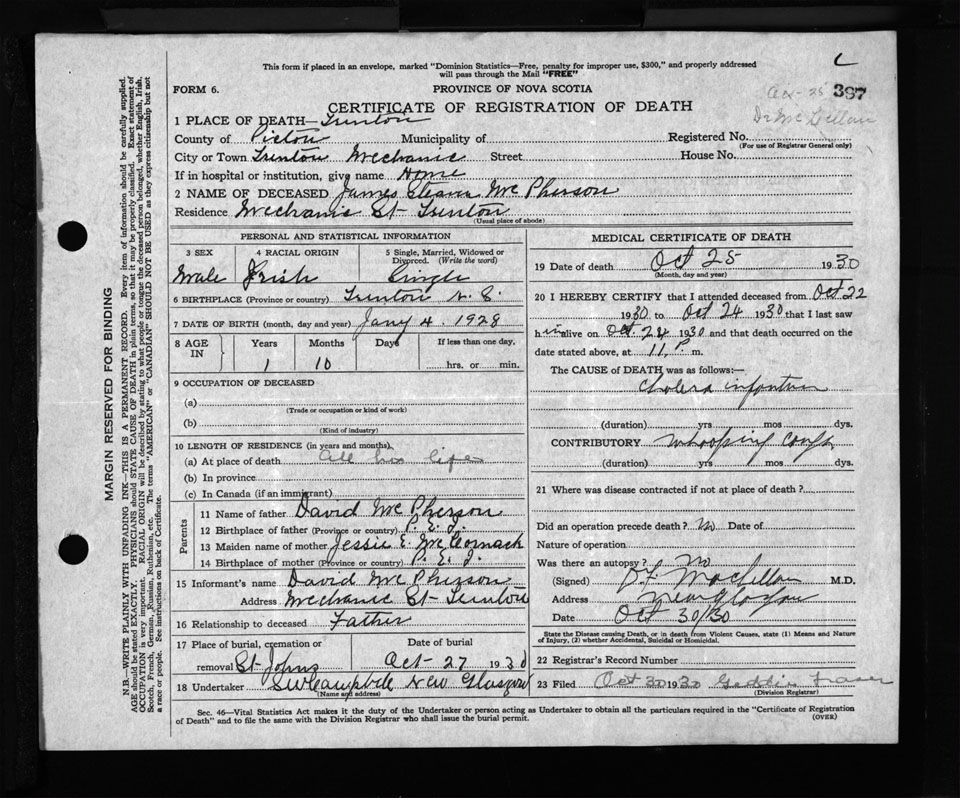 This form if placed in an envelope, marked "Dominion Statistics—Free, penalty for improper use, $300," and properly addressed
will pass through the Mail "FREE"
L
FORM 6.
PROVINCE OF NOVA SCOTIA
397
CERTIFICATE OF REGISTRATION OF DEATH
1 PLACE OF DEATH— Trenton
County of Pictou Municipality of Registered No.
(For use of Registrar General only)
City or Town Trenton Mechanic Street House No.
If in hospital or institution, give name Home
2 NAME OF DECEASED James McPherson
Residence Mechanic St Trenton
(Usual place of abode)
PERSONAL AND STATISTICAL INFORMATION
3 SEX 4 RACIAL ORIGIN 5 Single, Married, Widowed or
Divorced. (Write the word)
Male Irish Single
6 BIRTHPLACE (Province or country) Trenton N.S.
7 DATE OF BIRTH (month, day and year) Jany 4. 1928
8 AGE IN Years Months Days If less than one day,
1 10 hrs. or min.
9 OCCUPATION OF DECEASED
(a)
(Trade or occupation or kind of work)
(b)
(Kind of industry)
10 LENGTH OF RESIDENCE (in years and months)
(a) At place of death All his life
(b) In province
(c) In Canada (if an immigrant)
Parents
11 Name of father David McPherson
12 Birthplace of father (Province or country) P.E.I.
13 Maiden name of mother Jessie E. McCormack
14 Birthplace of mother (Province or country) P.E.I.
15 Informant's name David McPherson
Address Mechanic St Trenton
16 Relationship to deceased Father
17 Place of burial, cremation or Date of burial
removal St Johns Oct 27 1930
18 Undertaker Campbell New Glasgow
(Name and address)
MEDICAL CERTIFICATE OF DEATH
19 Date of death Oct 25 1930
(Month, day and year)
20 I HEREBY CERTIFY that I attended deceased from Oct 22
1930 to Oct 24 1930 that I last saw
him alive on Oct. 24 1930 and that death occurred on the
date stated above, at 11 P. m.
The CAUSE of DEATH was as follows:—
Cholera infantum
(duration) yrs mos dys.
CONTRIBUTORY Whooping Cough
(duration) yrs mos dys.
21 Where was disease contracted if not at place of death?
Did an operation precede death? No Date of
Nature of operation
Was there an autopsy? No
(Signed) MacLellan M.D.
Address New Glasgow
Date Oct 30/30
State the Disease causing Death, or in death from Violent Causes, state (1) Means and Nature
of Injury, (2) whether Accidental, Suicidal or Homicidal.
22 Registrar's Record Number
23 Filed Oct 30 1930 Fraser
(Division Registrar)
Sec. 46—Vital Statistics Act makes it the duty of the Undertaker or person acting as Undertaker to obtain all the particulars required in the "Certificate of Registration
of Death" and to file the same with the Division Registrar who shall issue the burial permit.
(OVER)
MARGIN RESERVED FOR BINDING
N.B.—WRITE PLAINLY WITH UNFADING INK—THIS IS A PERMANENT RECORD. Every item of information should be carefully supplied.
AGE should be stated EXACTLY. PHYSICIANS should STATE CAUSE OF DEATH in plain terms, so that it may be properly classified. Exact statement of
OCCUPATION is very important. RACIAL ORIGIN will be described by stating to what people or tongue the deceased person belonged, whether English, Irish,
Scotch, French, German, Russian, Ruthenian, etc. The terms "AMERICAN" or "CANADIAN" SHOULD NOT BE USED as they express citizenship but not
a race or people. See instructions on back of Certificate.